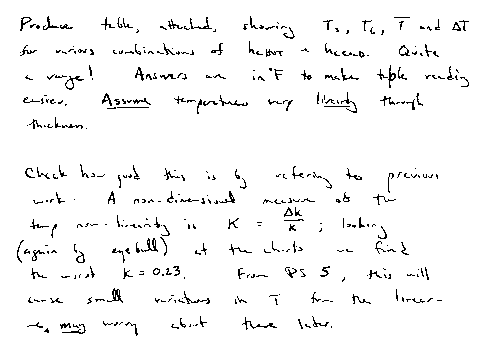 Produce table, attached, showing T₅, T₆, T̄ and ΔT
for various combinations of h_HOT + h_COLD. Quite
a range! Answers are in °F to make table reading
easier. Assume temperatures vary linearly through
thickness.
Check how good this is by referring to previous
work. A non-dimensional measure of the
temp non-linearity is K = Δk/k ; looking
(again by eyeball) at the charts we find
the worst K = 0.23. From PS 5, this will
cause small variations in T̄ from the linear
may worry about these later.